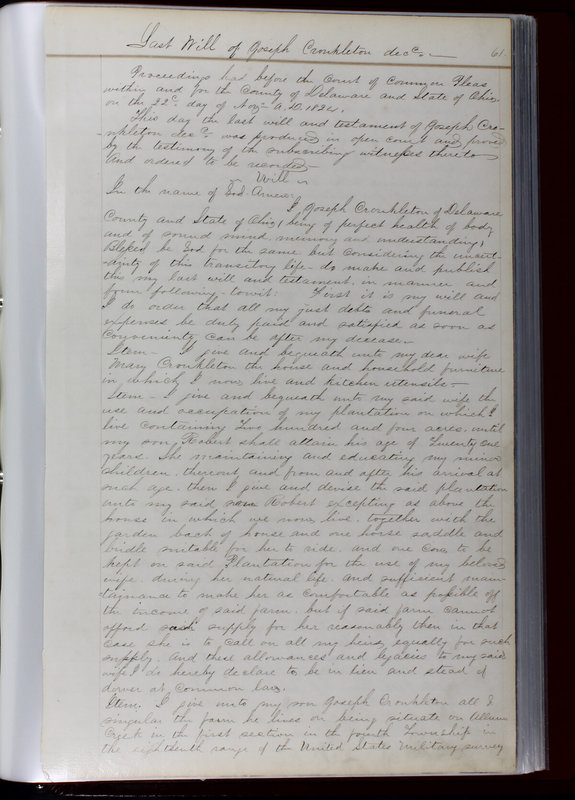 Last Will of Joseph Cronkleton decd. 61
Proceedings had before the Court of Common Pleas
within and for the County of Delaware and State of Ohio
on the 22d. day of Nov. A.D. 1824.
This day the last will and testament of Joseph Cro-
-nkleton decd. was produced in open court and proved
by the testimony of the subscribing witnesses thereto
and ordered to be recorded
Will
In the name of God Amen.
I Joseph Cronkleton of Delaware
County and State of Ohio, being of perfect health of body
and of sound mind, memory and understanding,
Blessed be God for the same but considering the uncert-
-ainty of this transitory life do make and publish
this my last will and testament, in manner and
form following. towit: First it is my will and
I do order that all my just debts and funeral
expenses be duly paid and satisfied as soon as
conveniently can be after my decease.
Item - I give and bequeath unto my dear wife
Mary Cronkleton the house and household furniture
in which I now live and kitchen utensils
Item - I give and bequeath unto my said wife the
use and occupation of my plantation on which I
live containing Two hundred and four acres, until
my son Robert shall attain his age of Twenty one
years. She maintaining and educating my minor
children thereout and from and after his arrival at
such age. then I give and devise the said plantation
unto my said son Robert excepting as above the
house in which we now live. together with the
garden back of house and one horse saddle and
bridle suitable for her to ride. and one Cow to be
kept on said Plantation for the use of my beloved
wife. during her natural life. and sufficient main-
tainance to make her as comfortable as possible off
the income of said farm. but if said farm cannot
afford such supply for her reasonably then in that
case she is to call on all my heirs equally for such
supply. And these allowances and legacies to my said
wife I do hereby declare to be in lieu and stead of
dower at common law.
Item. I give unto my son Joseph Cronkleton all &
singular the farm he lives on being situate on Allum
Creek in the first section in the fourth Township in
the eighteenth range of the United States Military survey